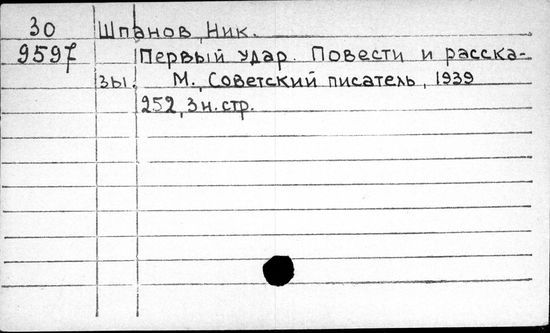 30 Шпанов, Ник.
9597 Первый удар. Повести и расска-
зы. М., Советский писатель, 1939
252, 3 н. стр.